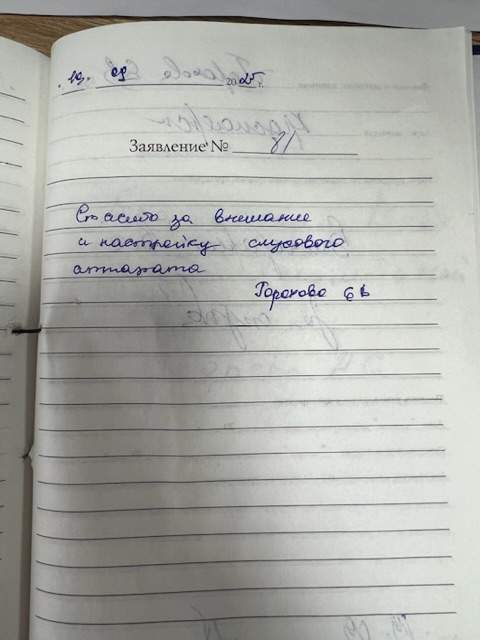 19. 09 2025 г.
Заявление № 81
Спасибо за внимание
и настройку слухового
аппарата
Горохова ЕВ